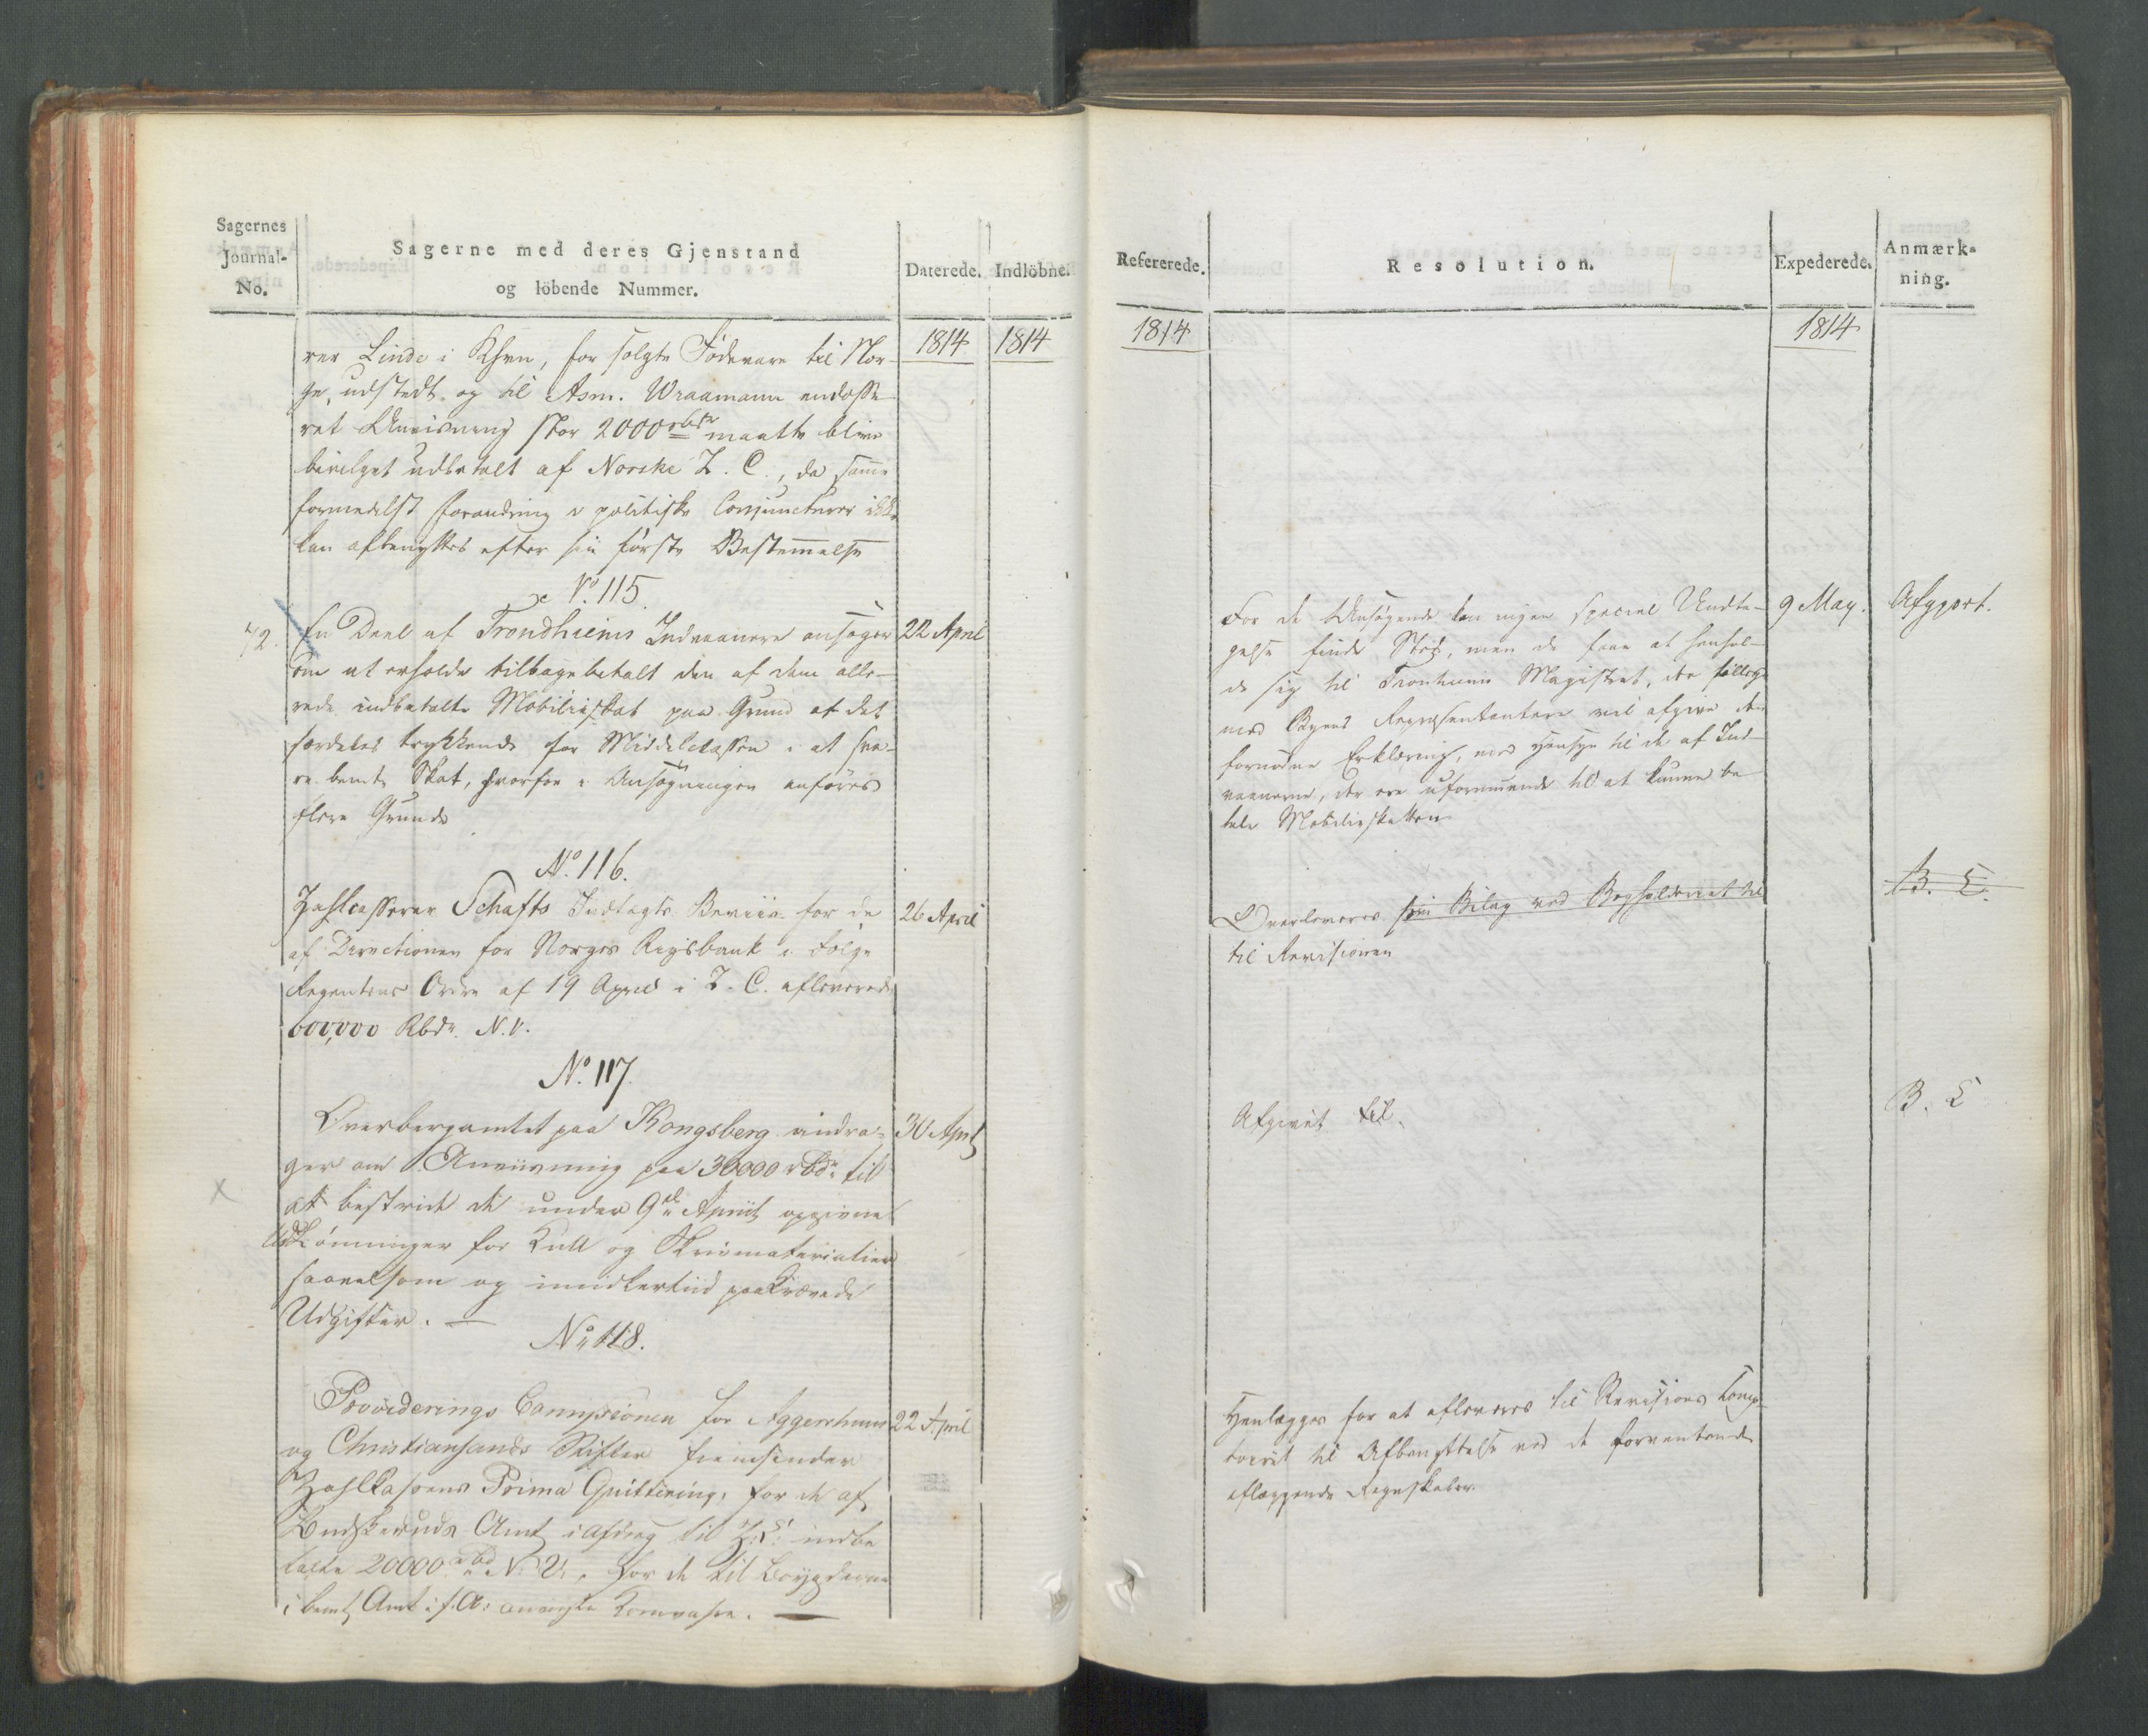 Sagernes
Journal-
No.
Sagerne med deres Gjenstand
og löbende Nummer.
Daterede.
Indlöbne.
1814
1814
rer Linde i Khvn, for solgte Födevare til Nor-
ge, udstedt og til Asm. Wraamann endosse-
ret Anviisning stor 2000 rbdr maatte blive
bevilget udbetalt af Norske Z. C., da samme
formedelst forandring i politiske Conjuncturer ikke
kan afbenyttes efter sin første Bestemmelse
No. 115.
72.
En Deel af Trondhiems Indvaanere ansøger
22 April
om at erholde tilbagebetalt den af dem alle-
rede indbetalte Mobilieskat paa Grund af det
særdeles trykkende for Middelclassen i at sva-
re bemte Skat, hvorfor i Ansøgningen anføres
flere Grunde
No. 116.
Zahlcasserer Schafts Indtægts Beviis for de
26 April
af Directionen for Norges Rigsbank i Følge
Regentens Ordre af 19 April i Z. C. afleverede
600,000 Rbdr. N.V.
No. 117.
Overbergamtet paa Kongsberg andra-
30 April
ger om Anviisning paa 30000 rbdr til
at bestride de under 9de April opgivne
Udlønninger for Kull og Skrivmaterialier
saavelsom og imidlertiid paakrævede
Udgifter.
No. 118.
Provideringe Commissionen for Aggershuus
22 April
og Christiansands Stifter fremsender
Zahlkassens Prima Quittering, for de af
Budskeruds Amt i Afdrag til Z:C: indbe
talte 20000 rbd N.V., for de til Bøygderne
i bemte Amt i f. A: anviiste Kornvahre.
Refererede.
Resolution.
Expederede.
Anmærk-
ning.
1814
1814
For de Ansøgende kan ingen special Undta-
9 May.
Afgjort.
gelse finde Sted, men de have at henhol-
de sig til Tronhiems Magistrat, der tillige
med Byens Repræsentantere vil afgive den
fornødne Erklæring, med Hensyn til de af Ind-
vaanerne, der ere uformuende til at kunne be
tale Mobilieskatten
Overleveres som Bilag ved Bogholderiet til
B. C.
til Revisionen
Afgivet til.
B. C
Henlægges for at afleveres til Revisions Comp-
toiret til Afbenyttelse ved de forventende
aflæggende Regnskaber.